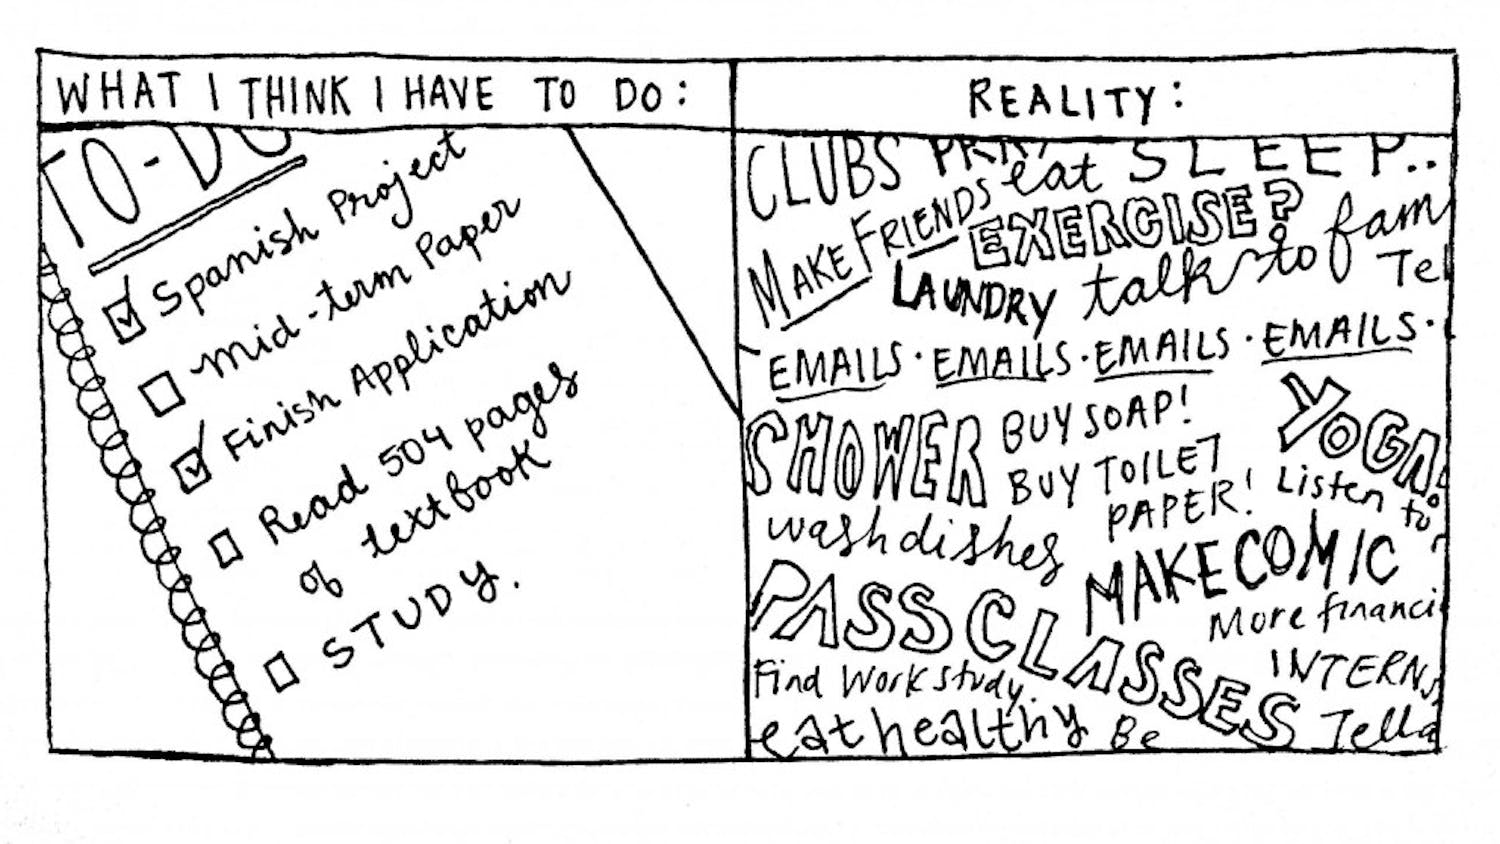 WHAT I THINK I HAVE TO DO:
TO-DO
Spanish Project
Mid-term Paper
Finish Application
Read 504 pages
of textbook
STUDY.
REALITY:
CLUBS eat SLEEP..
MAKE FRIENDS EXERCISE?
LAUNDRY talk to fam
Tel
EMAILS · EMAILS · EMAILS · EMAILS ·
SHOWER BUY SOAP! YOGA!
BUY TOILET
PAPER! Listen to
wash dishes
MAKE COMIC
PASS CLASSES
More financi
Find Work study. INTERNS
eat healthy Be Tella